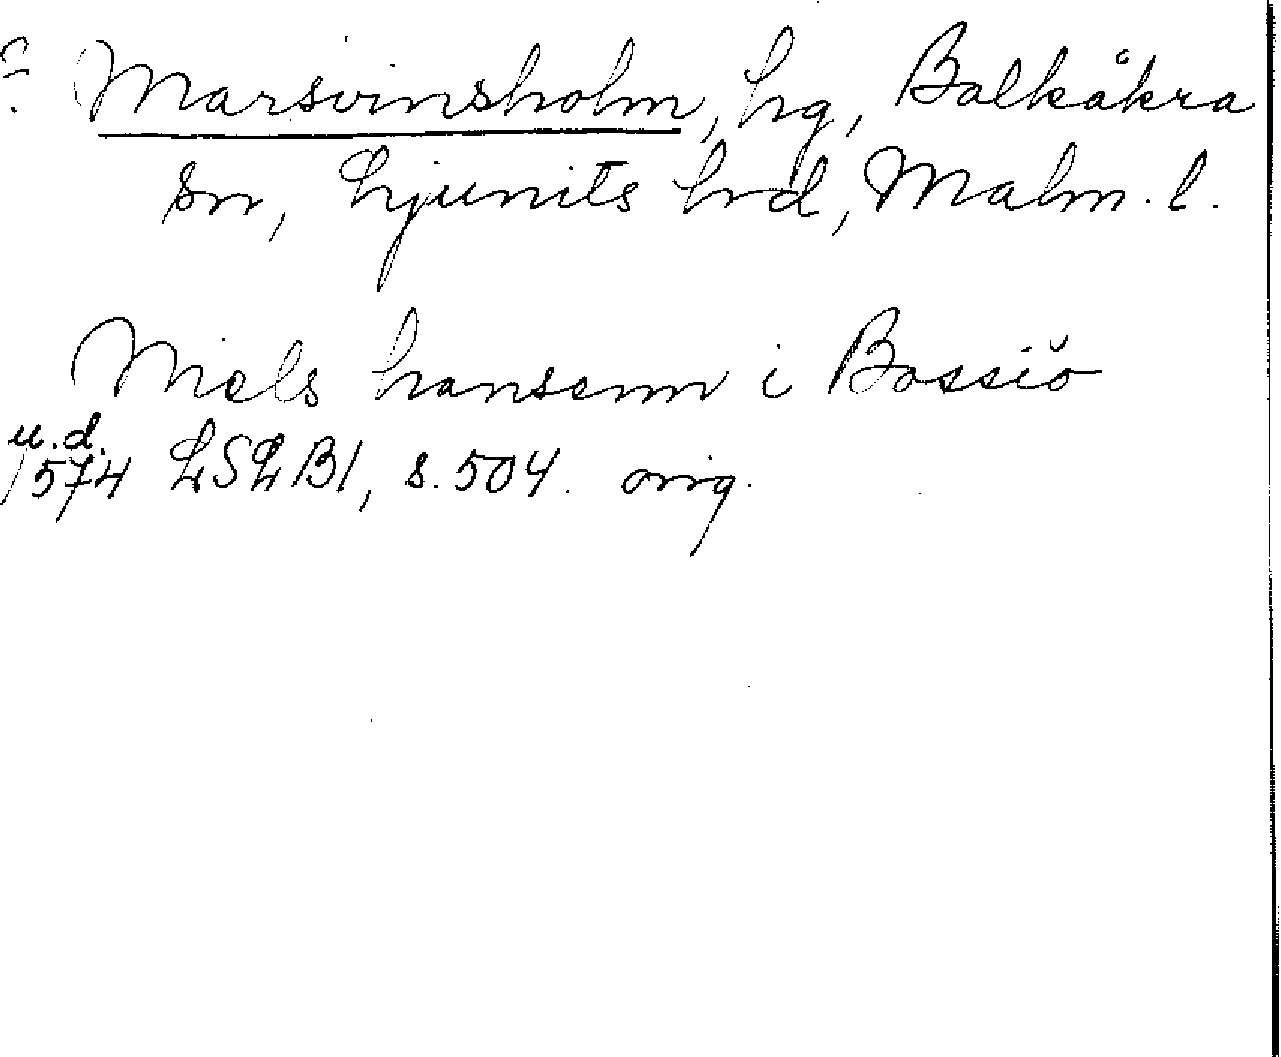 ? Marsvinsholm, hg, Balkåkra
sn, Ljunits hrd, Malm. l.
Niels hansenn i Bossiö
u.d.
1574 LSLB1, s. 504. orig.